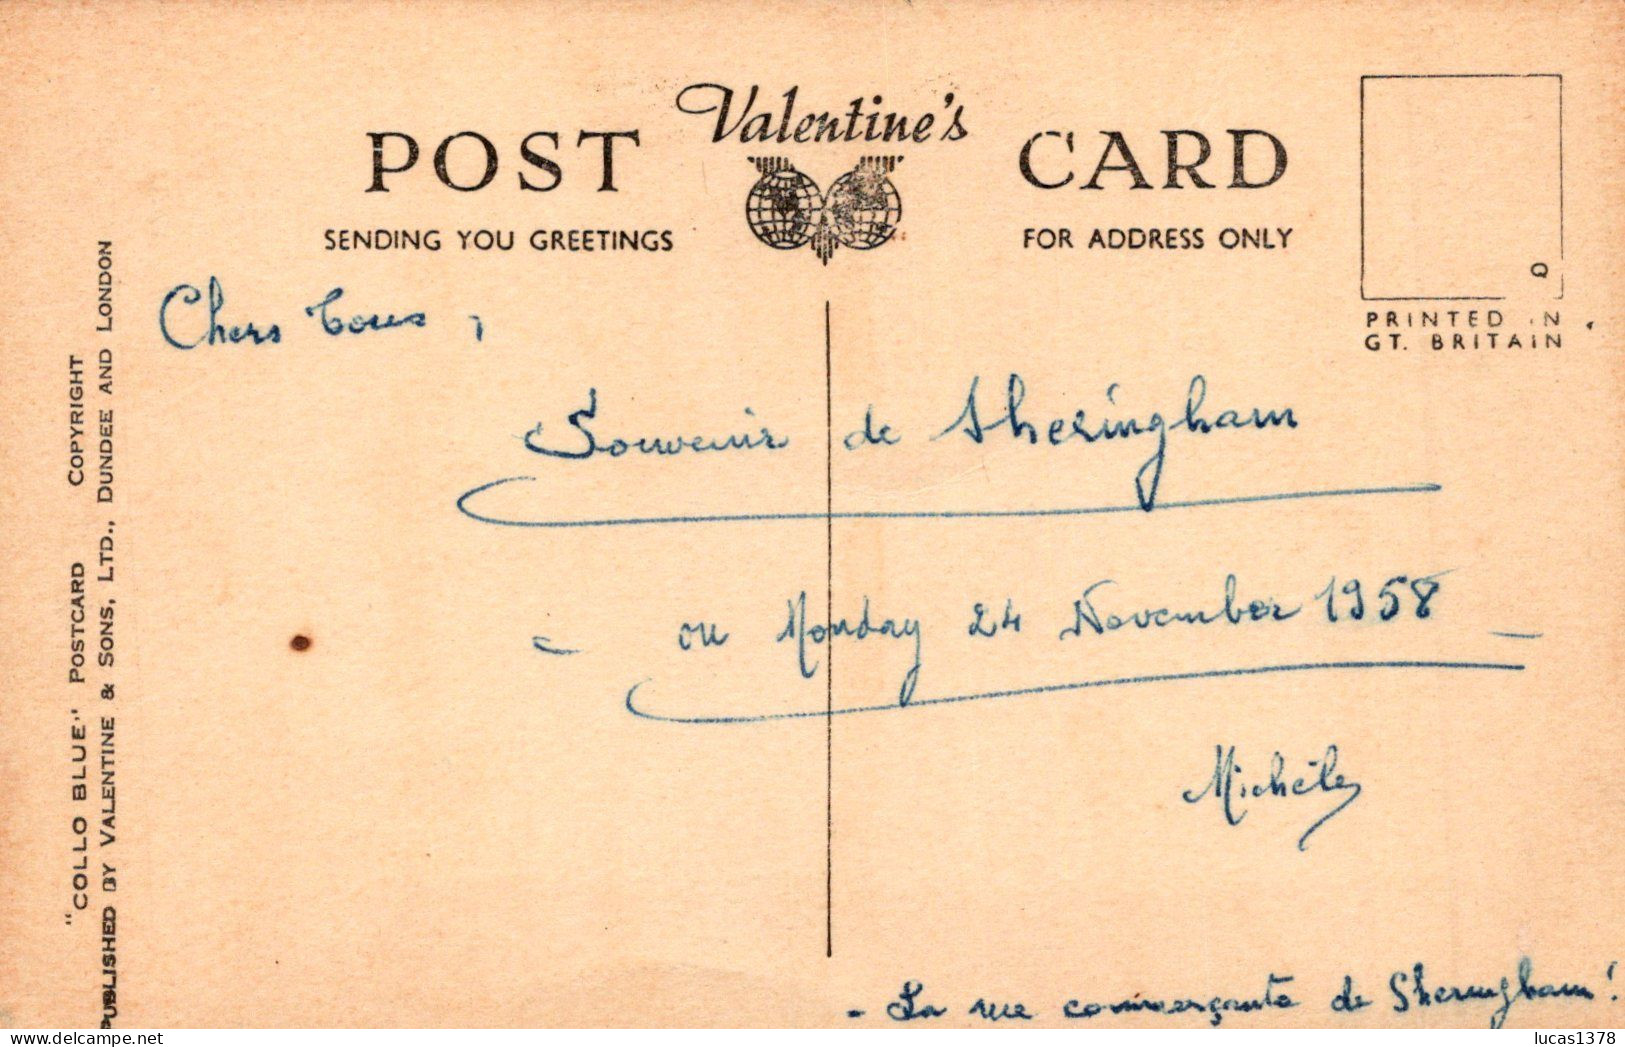 Valentine's
POST CARD
SENDING YOU GREETINGS
FOR ADDRESS ONLY
Q
PRINTED IN
GT. BRITAIN
"COLLO BLUE" POSTCARD COPYRIGHT
PUBLISHED BY VALENTINE & SONS, LTD., DUNDEE AND LONDON
Chers tous,
Souvenir de Sheringham
- on Monday 24 November 1958 -
Michèle
- La rue commerçante de Sheringham!
lucas1378